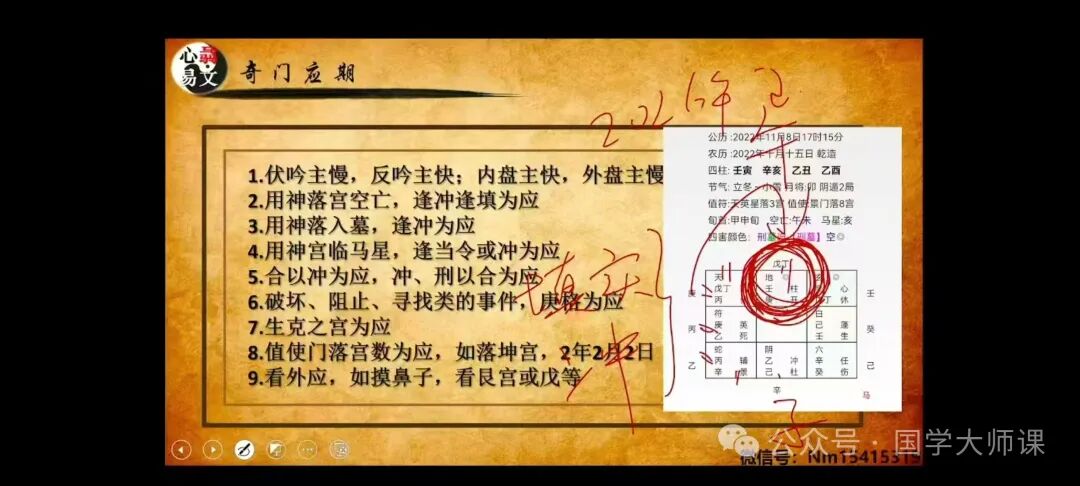 心易
易文
奇门应期
1.伏吟主慢，反吟主快；内盘主快，外盘主慢
2.用神落宫空亡，逢冲逢填为应
3.用神落入墓，逢冲为应
4.用神宫临马星，逢当令或冲为应
5.合以冲为应，冲、刑以合为应
6.破坏、阻止、寻找类的事件，庚格为应
7.生克之宫为应
8.值使门落宫数为应，如落坤宫，2年2月2日
9.看外应，如摸鼻子，看艮宫或戊等
填实
冲
午
子
公历:2022年11月8日17时15分
农历:2022年十月十五日 乾造
四柱: 壬寅 辛亥 乙丑 乙酉
节气: 立冬~小雪 月将:卯 阴遁2局
值符:天英星落3宫 值使:景门落8宫
旬首:甲申旬 空亡:午未 马星:亥
四害颜色: 刑墓 【刑墓】空◎
戊丁
天 地
庚 戊丁 壬 柱 心 壬
丙 开 丁 休
符 白
丙 庚 英 己 蓬 癸
乙 死 壬 生
蛇 阴 六
乙 丙 辅 乙 冲 辛 任 己
辛 景 己 杜 癸 伤
辛 马
微信号：Nm15415319
公众号·国学大师课